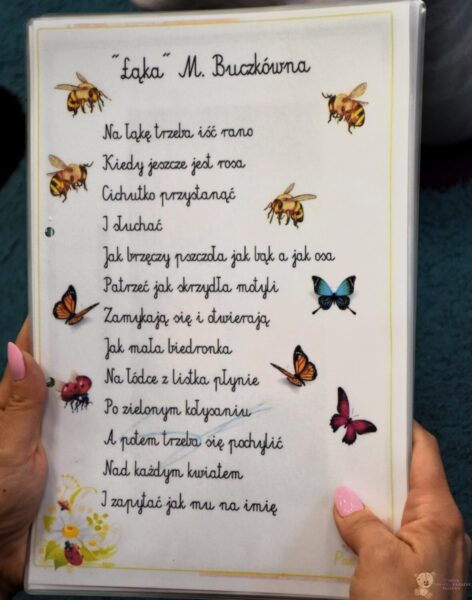 "Łąka" M. Buczkówna
Na łąkę trzeba iść rano
Kiedy jeszcze jest rosa
Cichutko przystanąć
I słuchać
Jak brzęczy pszczoła jak bąk a jak osa
Patrzeć jak skrzydła motyli
Zamykają się i otwierają
Jak mała biedronka
Na łódce z listka płynie
Po zielonym kołysaniu
A potem trzeba się pochylić
Nad każdym kwiatem
I zapytać jak mu na imię